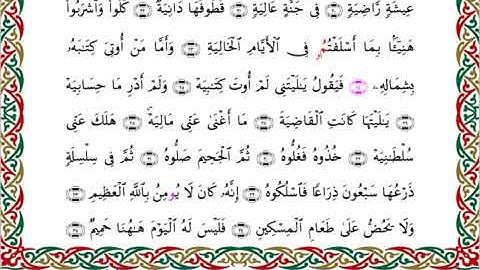 عِيشَةٍ رَّاضِيَةٍ ۝ فِى جَنَّةٍ عَالِيَةٍ ۝ قُطُوفُهَا دَانِيَةٌ ۝ كُلُوا۟ وَٱشْرَبُوا۟
هَنِيٓـًٔۢا بِمَآ أَسْلَفْتُمُۥ فِى ٱلْأَيَّامِ ٱلْخَالِيَةِ ۝ وَأَمَّا مَنْ أُوتِىَ كِتَـٰبَهُۥ
بِشِمَالِهِۦ ۝ فَيَقُولُ يَـٰلَيْتَنِى لَمْ أُوتَ كِتَـٰبِيَهْ ۝ وَلَمْ أَدْرِ مَا حِسَابِيَهْ
۝ يَـٰلَيْتَهَا كَانَتِ ٱلْقَاضِيَةَ ۝ مَآ أَغْنَىٰ عَنِّى مَالِيَهْ ۜ ۝ هَلَكَ عَنِّى
سُلْطَـٰنِيَهْ ۝ خُذُوهُ فَغُلُّوهُ ۝ ثُمَّ ٱلْجَحِيمَ صَلُّوهُ ۝ ثُمَّ فِى سِلْسِلَةٍ
ذَرْعُهَا سَبْعُونَ ذِرَاعًا فَٱسْلُكُوهُ ۝ إِنَّهُۥ كَانَ لَا يُومِنُ بِٱللَّهِ ٱلْعَظِيمِ ۝
وَلَا يَحُضُّ عَلَىٰ طَعَامِ ٱلْمِسْكِينِ ۝ فَلَيْسَ لَهُ ٱلْيَوْمَ هَـٰهُنَا حَمِيمٌ ۝